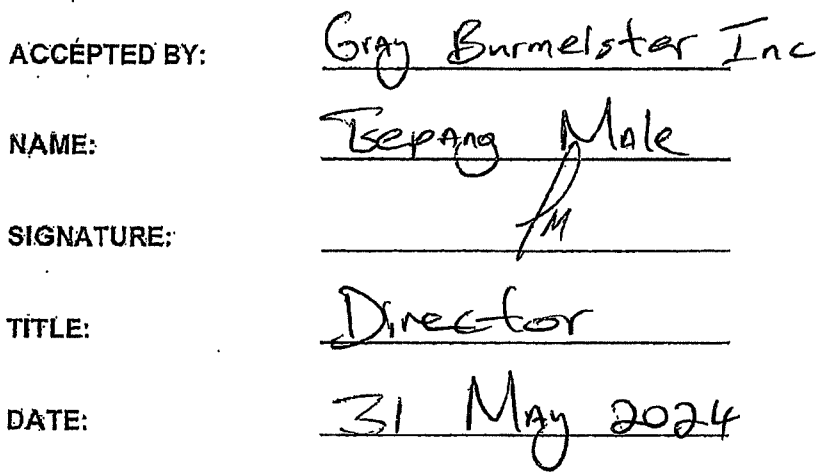 ACCEPTED BY: Gray Burmeister Inc
NAME: Tsepang Male
SIGNATURE: TM
TITLE: Director
DATE: 31 May 2024